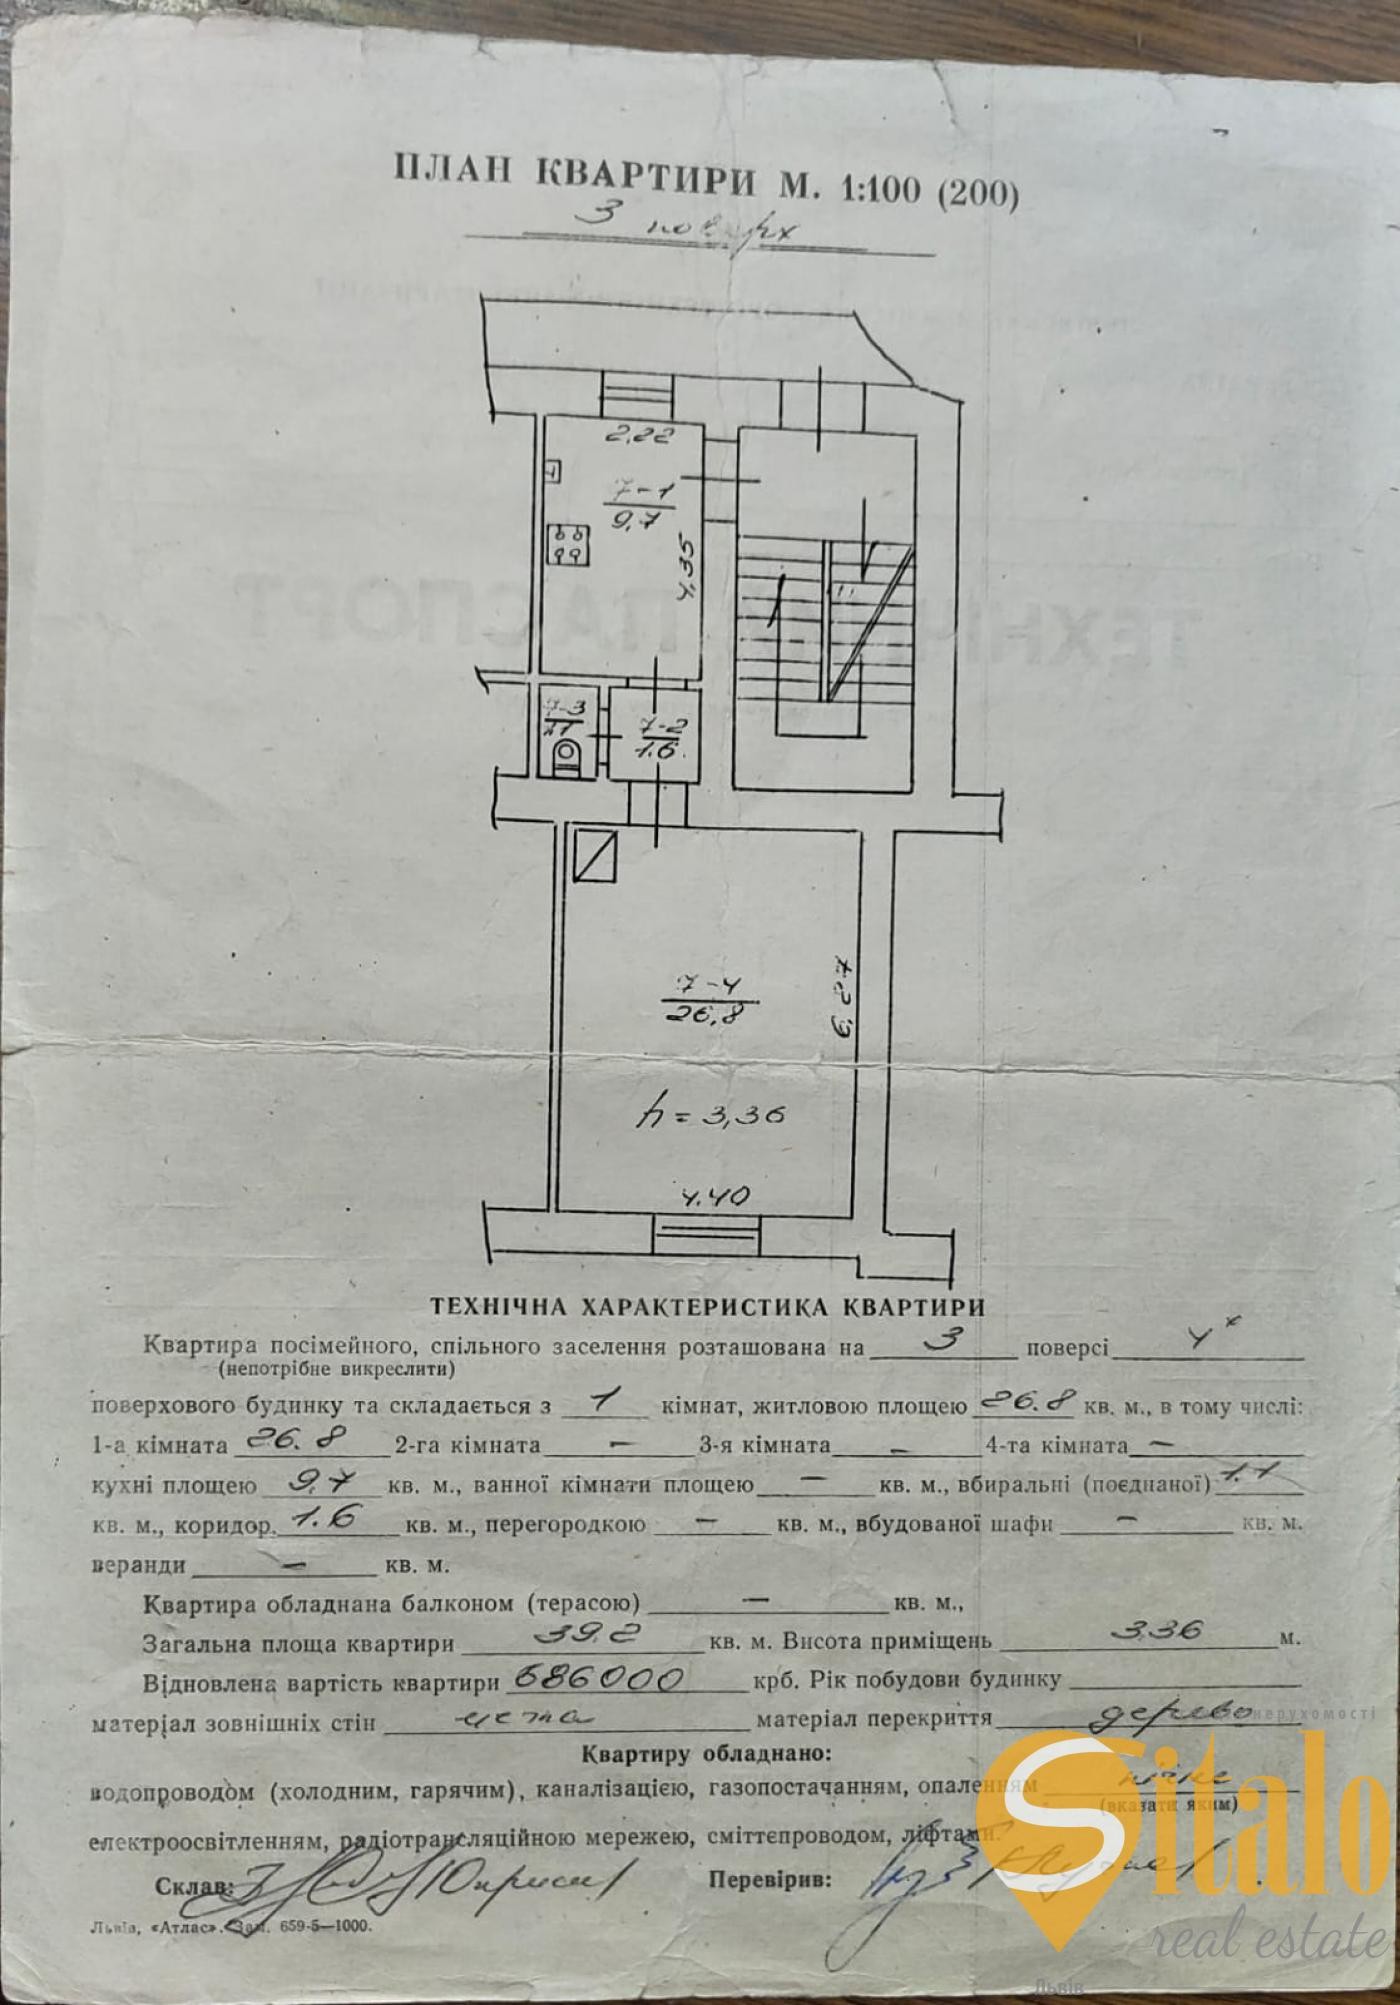 ПЛАН КВАРТИРИ М. 1:100 (200)
3 поверх
2,22
7-1
9,7
4,35
7-3
1,1
7-2
1.6
7-4
26,8
6,27
h = 3,36
4.40
ТЕХНІЧНА ХАРАКТЕРИСТИКА КВАРТИРИ
Квартира посімейного, спільного заселення розташована на 3 поверсі 4
(непотрібне викреслити)
поверхового будинку та складається з 1 кімнат, житловою площею 26.8 кв. м., в тому числі:
1-а кімната 26.8 2-га кімната — 3-я кімната — 4-та кімната —
кухні площею 9,7 кв. м., ванної кімнати площею — кв. м., вбиральні (поєднаної) 1.1
кв. м., коридор, 1.6 кв. м., перегородкою — кв. м., вбудованої шафи — кв. м.
веранди — кв. м.
Квартира обладнана балконом (терасою) — кв. м.,
Загальна площа квартири 39.2 кв. м. Висота приміщень 3.36 м.
Відновлена вартість квартири 686000 крб. Рік побудови будинку
матеріал зовнішніх стін цегла матеріал перекриття дерево
Квартиру обладнано:
водопроводом (холодним, гарячим), каналізацією, газопостачанням, опаленням пічне
(вказати яким)
електроосвітленням, радіотрансляційною мережею, сміттєпроводом, ліфтами.
Склав: Перевірив:
Львів, «Атлас». Зам. 659-5—1000.
нерухомості
Sitalo
real estate
Львів